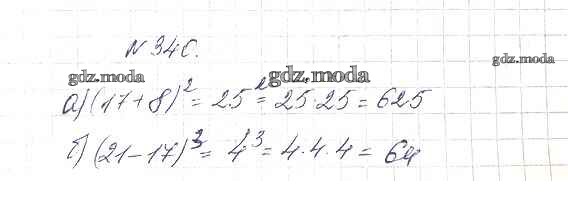 №340.
gdz.moda gdz.moda gdz.moda
а) (17+8)² = 25² = 25·25 = 625
б) (21-17)³ = 4³ = 4·4·4 = 64